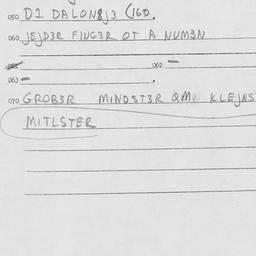 050 D1 DALONBJ3 (160.
060 JEJD3R FING3R OT A NUM3N
062
063
070 GROB3R MINDST3R QM KLEJNS
MITLSTER